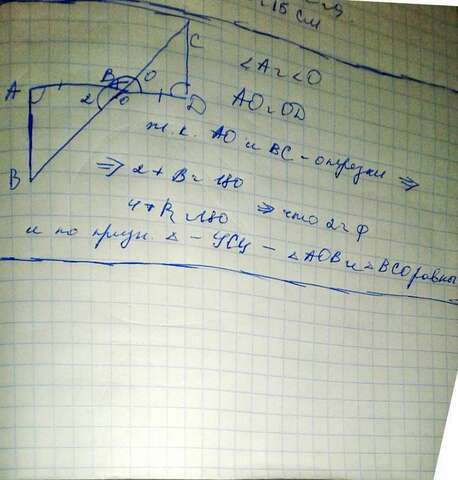 15 см
C
A
B
O
2
O
D
B
∠A = ∠D
AO = OD
т.к. AD и BC - отрезки ⇒
⇒ 2 + B = 180
4 + B = 180 ⇒ что 2 = φ
и по призн △ - УСУ - △AOB и △ВСО равны